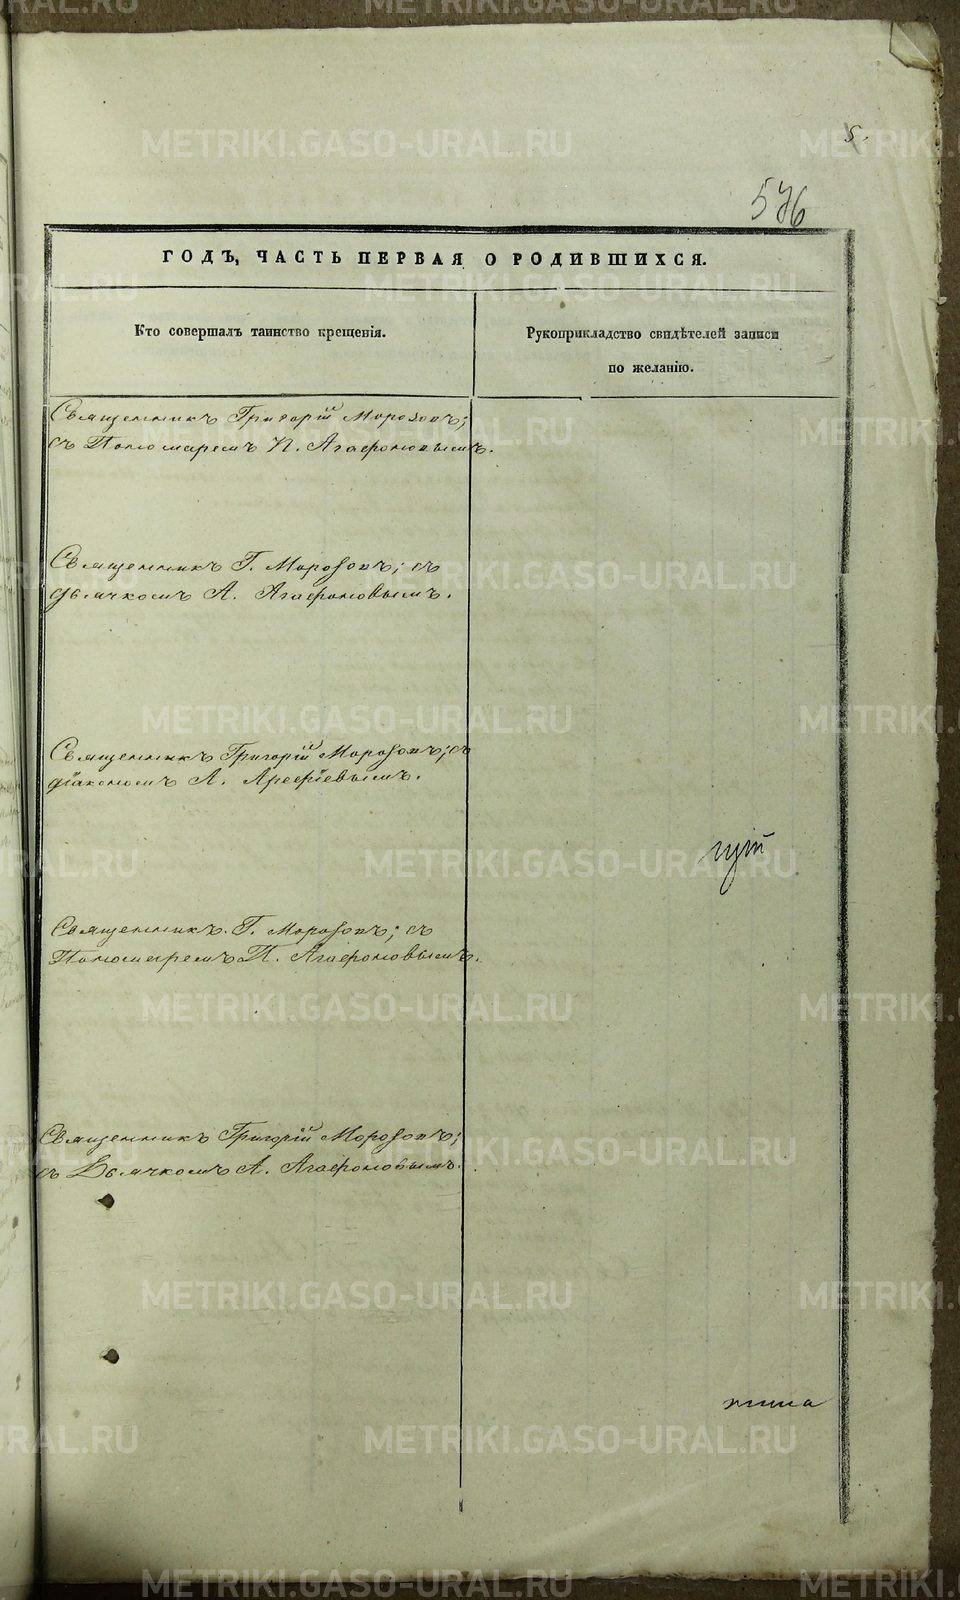 5.
576
ГОДЪ, ЧАСТЬ ПЕРВАЯ О РОДИВШИХСЯ.
Кто совершалъ таинство крещенія.
Рукоприкладство свидѣтелей записи
по желанію.
Священникъ Григорій Морозовъ;
съ Пономаремъ П. Агафоновымъ.
Священникъ Г. Морозовъ; съ
дьячкомъ А. Агафоновымъ.
Священникъ Григорій Морозовъ; съ
діакономъ А. Арефіевымъ.
Священникъ Г. Морозовъ; съ
Пономаремъ П. Агафоновымъ.
Священникъ Григорій Морозовъ;
съ Дьячкомъ А. Агафоновымъ.
METRIKI.GASO-URAL.RU